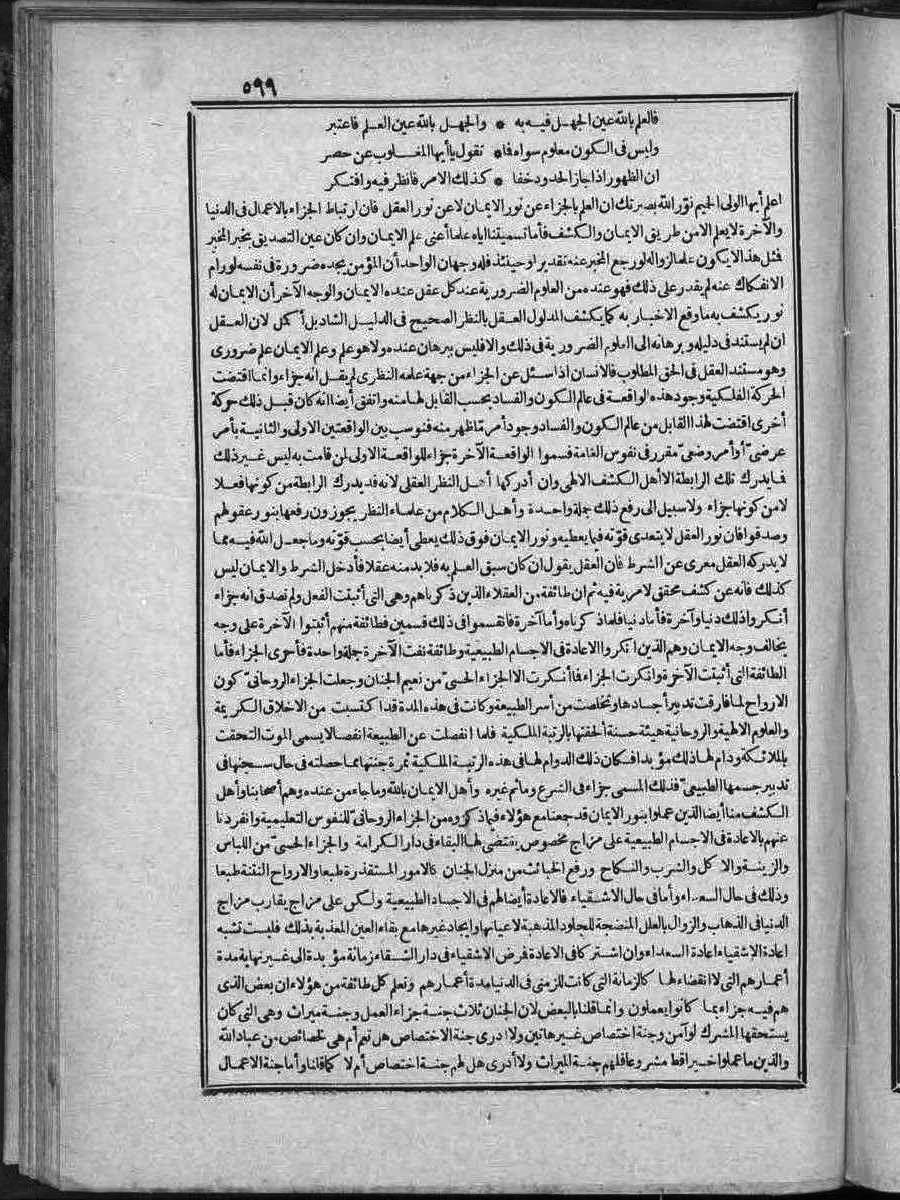 ٥٩٩
فالعلم بالله عين الجهل فيه به * والجهل بالله عين العلم فاعتبر
وليس فى الكون معلوم سواه فا* تقول يا أيها المغلوب عن حصر
ان الظهور اذا جاز الحدود خفا * كذلك الامر فانظر فيه وافتكر
اعلم أيها الولى الحيم نوّر الله بصيرتك ان العلم بالجزاء عن نور الايمان لا عن نور العقل فان ارتباط الجزاء بالاعمال فى الدنيا
والآخرة لا يعلم الا من طريق الايمان والكشف فأما تسميتنا اياه علما أعنى علم الايمان وان كان عين التصديق بخبر المخبر
فمثل هذا لا يكون علما لزواله لو رجع المخبر عنه تقديرا وحينئذ فله وجهان الواحد أن المؤمن يجده ضرورة فى نفسه لو رام
الانفكاك عنه لم يقدر على ذلك فهو عنده من العلوم الضرورية عند كل عقل عنده الايمان والوجه الآخر أن الايمان له
نور يكشف به ما وقع الاخبار به كما يكشف المدلول العقل بالنظر الصحيح فى الدليل الشاد بل أكمل لان العقل
ان لم يستند فى دليله وبرهانه الى العلوم الضرورية فى ذلك والا فليس ببرهان عنده ولا هو علم وعلم الايمان علم ضرورى
وهو مستند العقل فى الحق المطلوب فالانسان اذا سئل عن الجزاء من جهة علمه النظرى لم يقل انه جزاء وانما اقتضت
الحركة الفلكية وجود هذه الواقعة فى عالم الكون والفساد بحسب القابل لها منه واتفق أيضا انه كان قبل ذلك حركة
أخرى اقتضت لهذا القابل من عالم الكون والفساد وجود أمر ما ظهر منه فنوسب بين الواقعتين الاولى والثانية بأمر
عرضىّ أو أمر وضعىّ مقرر فى نفوس العامة فسموا الواقعة الآخرة جزاء للواقعة الاولى لمن قامت به ليس غير ذلك
فما يدرك تلك الرابطة الا أهل الكشف الالهى وان أدركها أهل النظر العقلى لانه قد يدرك الرابطة من كونها فعلا
لا من كونها جزاء ولا سبيل الى رفع ذلك جملة واحدة وأهل الكلام من علماء النظر يجوزون رفعها بنور عقولهم
وصدقوا فان نور العقل لا يتعدى قوّته فيما يعطيه ونور الايمان فوق ذلك يعطى أيضا بحسب قوّته وما جعل الله فيه مما
لا يدركه العقل معرى عن الشرط فان العقل يقول ان كان سبق العلم به فلا بد منه عقلا فأدخل الشرط والايمان ليس
كذلك فانه عن كشف محقق لا مرية فيه ثم ان طائفة من العقلاء الذين ذكرناهم وهى التى أثبتت الفعل ولم تصدق انه جزاء
أنكروا ذلك دنيا وآخرة فأما دنيا فلما ذكرناه وأما آخرة فانقسموا فى ذلك قسمين فطائفة منهم أثبتوا الآخرة على وجه
يخالف وجه الايمان وهم الذين انكروا الاعادة فى الاجسام الطبيعية وطائفة نفت الآخرة جملة واحدة فأحرى الجزاء فأما
الطائفة التى أثبتت الآخرة وانكرت الجزاء فما أنكرت الا الجزاء الحسىّ من نعيم الجنان وجعلت الجزاء الروحانىّ كون
الارواح لما فارقت تدبير أجسادها وتخلصت من أسر الطبيعة وكانت فى هذه المدة قد اكتسبت من الاخلاق الكريمة
والعلوم الالهية والروحانية هيئة حسنة ألحقتها بالرتبة الملكية فلما انفصلت عن الطبيعة انفصالا يسمى الموت التحقت
بالملائكة ودام لها ذلك مؤبدا فكان ذلك الدوام لها فى هذه الرتبة الملكية ثمرة جنتها مما حصلته فى حال سجنها فى
تدبير جسمها الطبيعىّ فذلك المسمى جزاء فى الشرع وما ثم غيره وأهل الايمان بالله وما جاء من عنده وهم أصحابنا وأهل
الكشف منا أيضا الذين عملوا بنور الايمان قد جمعنا مع هؤلاء فيما ذكروه من الجزاء الروحانىّ للنفوس التعليمية وانفردنا
عنهم بالاعادة فى الاجسام الطبيعية على مزاج مخصوص يقتضى لها البقاء فى دار الكرامة والجزاء الحسىّ من اللباس
والزينة والاكل والشرب والنكاح ورفع الخبائث من منزل الجنان كالامور المستقذرة طبعا والارواح النتنة طبعا
وذلك فى حال السعداء وأما فى حال الاشقياء فالاعادة أيضا لهم فى الاجساد الطبيعية ولكن على مزاج يقارب مزاج
الدنيا فى الذهاب والزوال بالعلل المنضجة للجلود المذهبة لاعيانها وايجاد غيرها مع بقاء العين المعذبة بذلك فليست تشبه
اعادة الاشقياء اعادة السعداء وان اشتركا فى الاعادة فمرض الاشقياء فى دار الشقاء زمانة مؤبدة الى غير نهاية مدة
أعمارهم التى لا انقضاء لها كالزمانة التى كانت للزمنى فى الدنيا مدة أعمارهم وتعلم كل طائفة من هؤلاء ان بعض الذى
هم فيه جزاء بما كانوا يعملون وانما قلنا بالبعض لان الجنان ثلاث جنة جزاء العمل وجنة ميراث وهى التى كان
يستحقها المشرك لو آمن وجنة اختصاص غير هاتين ولا أدرى جنة الاختصاص هل تعم أم هى لخصائص من عباد الله
والذين ما عملوا خيرا قط مشروعا فلهم جنة الميراث ولا أدرى هل لهم جنة اختصاص أم لا كما قلنا وأما جنة الاعمال